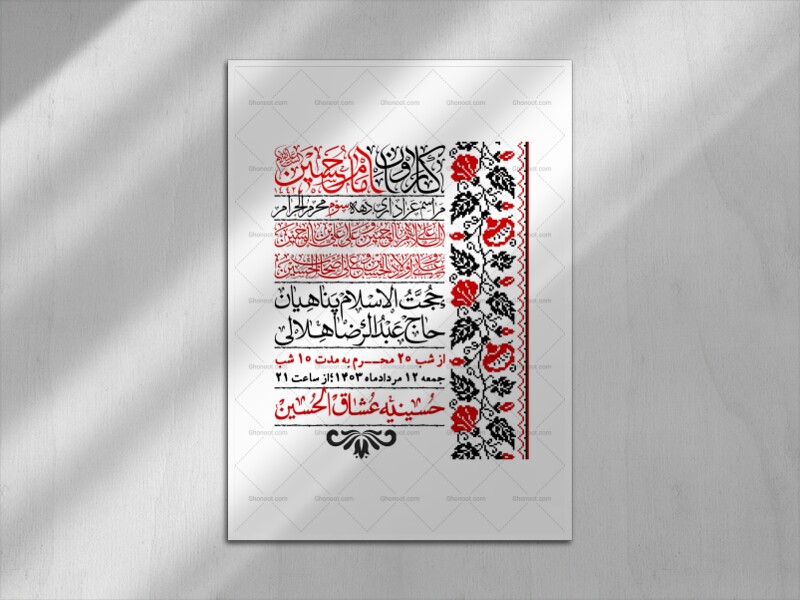 کاروان امام حسین
مراسم عزاداری دهه سوم محرم الحرام
السلام علی الحسین و علی علی بن الحسین
و علی اولاد الحسین و علی اصحاب الحسین
حجت الاسلام پناهیان
حاج عبدالرضا هلالی
از شب ۲۵ محرم به مدت ۱۰ شب
جمعه ۱۲ مردادماه ۱۴۰۳؛ از ساعت ۲۱
حسینیه عشاق الحسین
Ghonoot.com